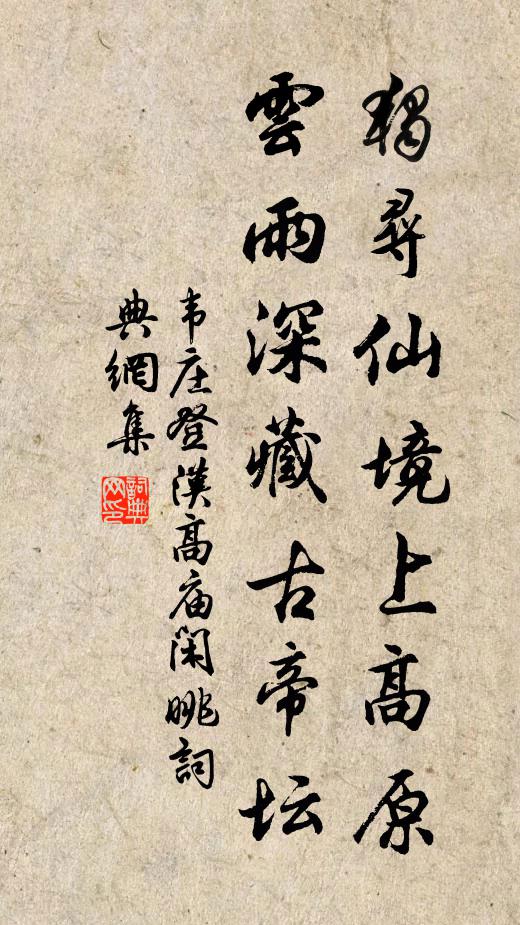 獨尋仙境上高原
雲雨深藏古帝坛
韦庄登漢高庙閑眺詞
典網集
詞典
网印